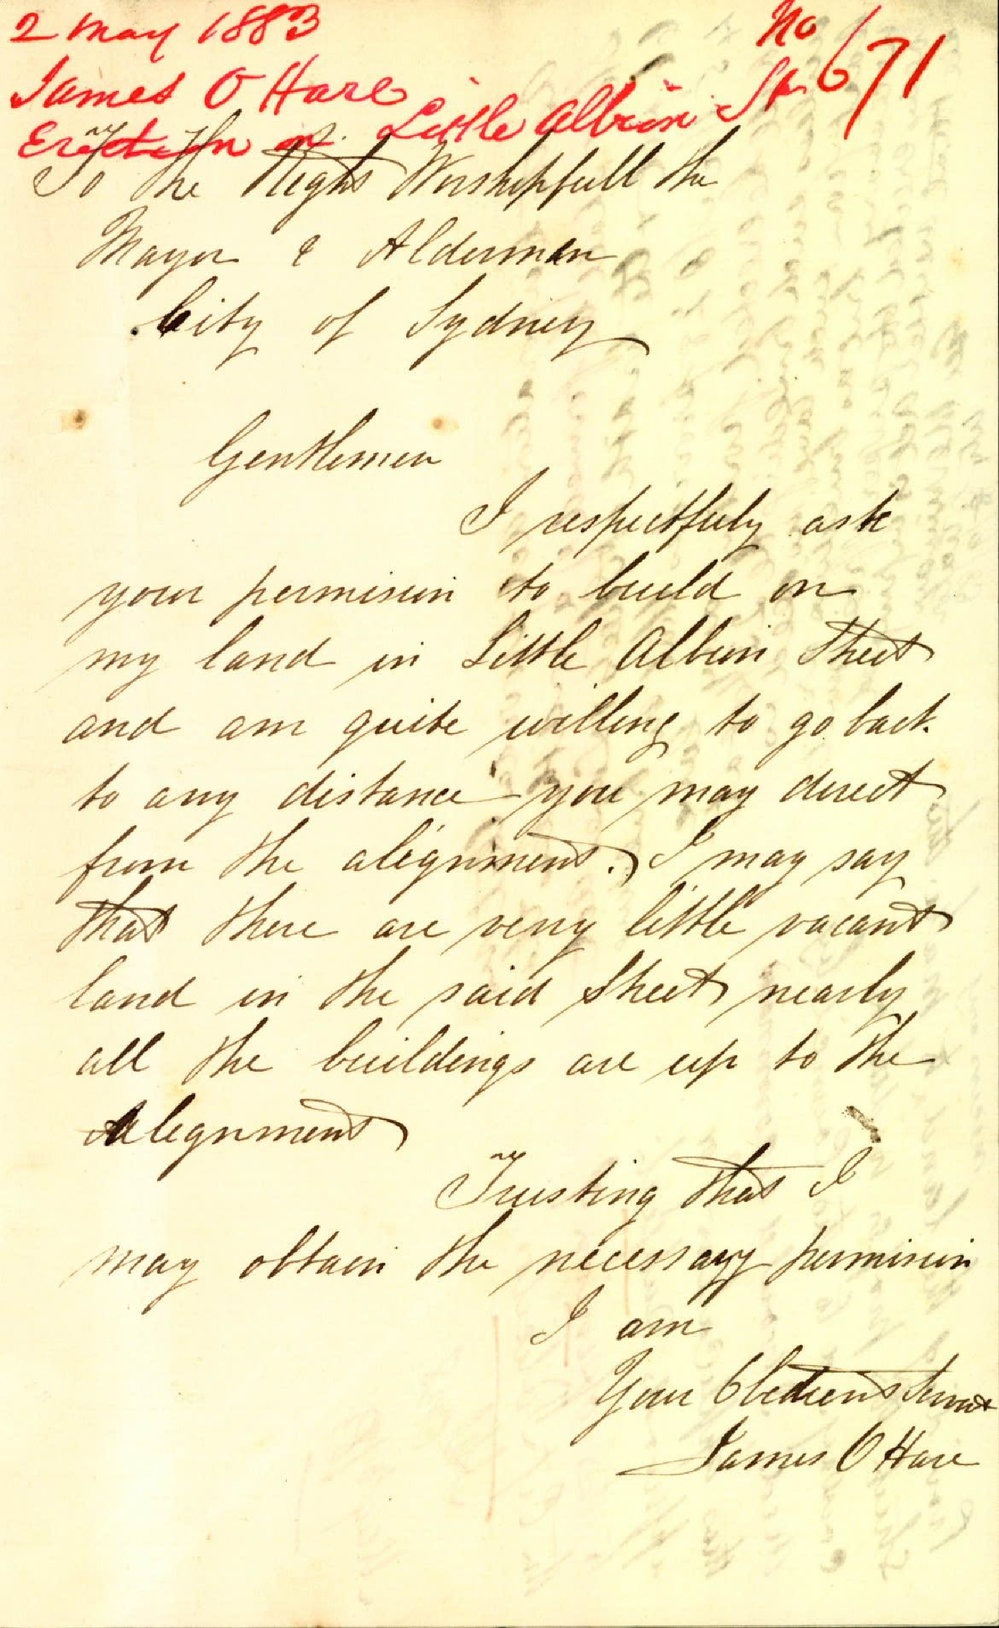 2 May 1883
No 671
James O Hare
Erection in Little Albion St.
To the Right Worshipfull the
Mayor & Alderman
City of Sydney
Gentlemen
I respectfuly ask
your permision to build on
my land in Little Albion Street
and am quite willing to go back
to any distance you may direct
from the alignment. I may say
that there are very little vacant
land in the said Street nearly
all the buildings are up to the
Alignment
Trusting that I
may obtain the necessary permision
I am
Your Obedient Servant
James O Hare